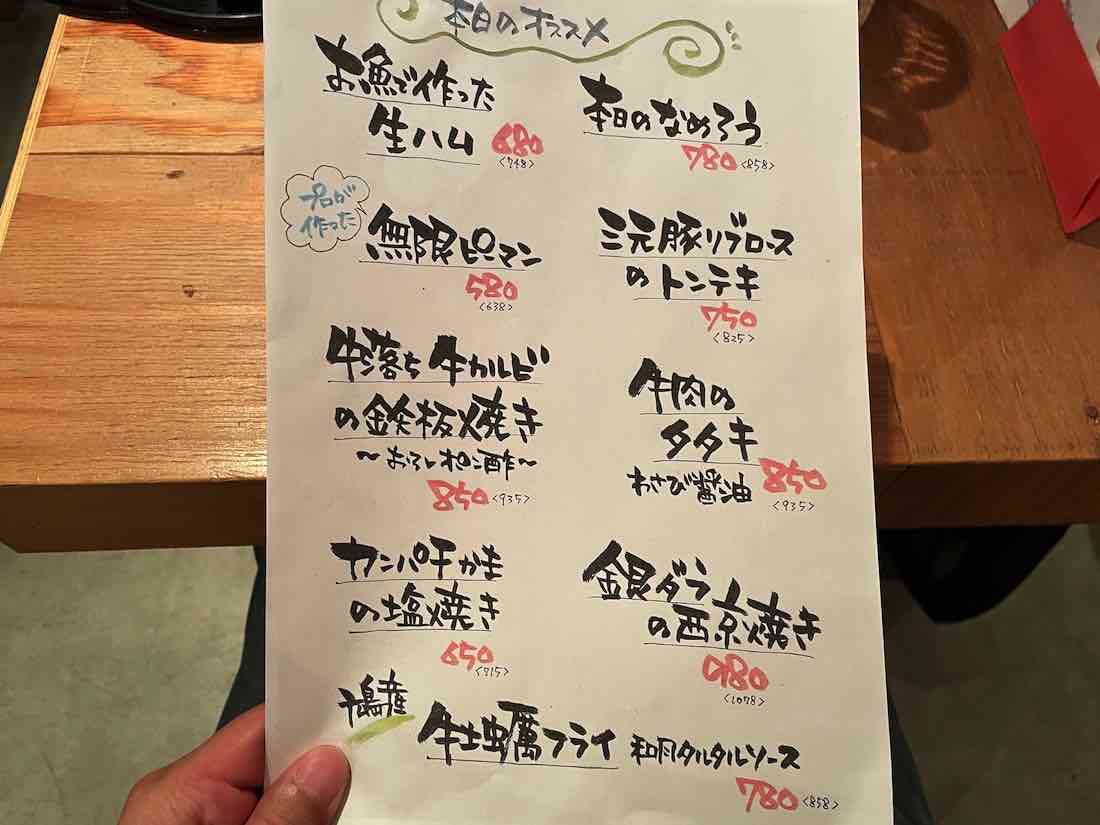 本日のオススメ
お魚で作った
生ハム 680
<748>
本日のなめろう
780 <858>
プロが
作った
無限ピーマン
580
<638>
三元豚リブロース
のトンテキ
750
<825>
牛カルビ
の鉄板焼き
～おろしポン酢～
850 <935>
牛肉の
タタキ
わさび醤油 850
<935>
カンパチかま
の塩焼き
650
<715>
銀ダラ
の西京焼き
980
<1078>
産
牡蠣フライ 和風タルタルソース
780 <858>